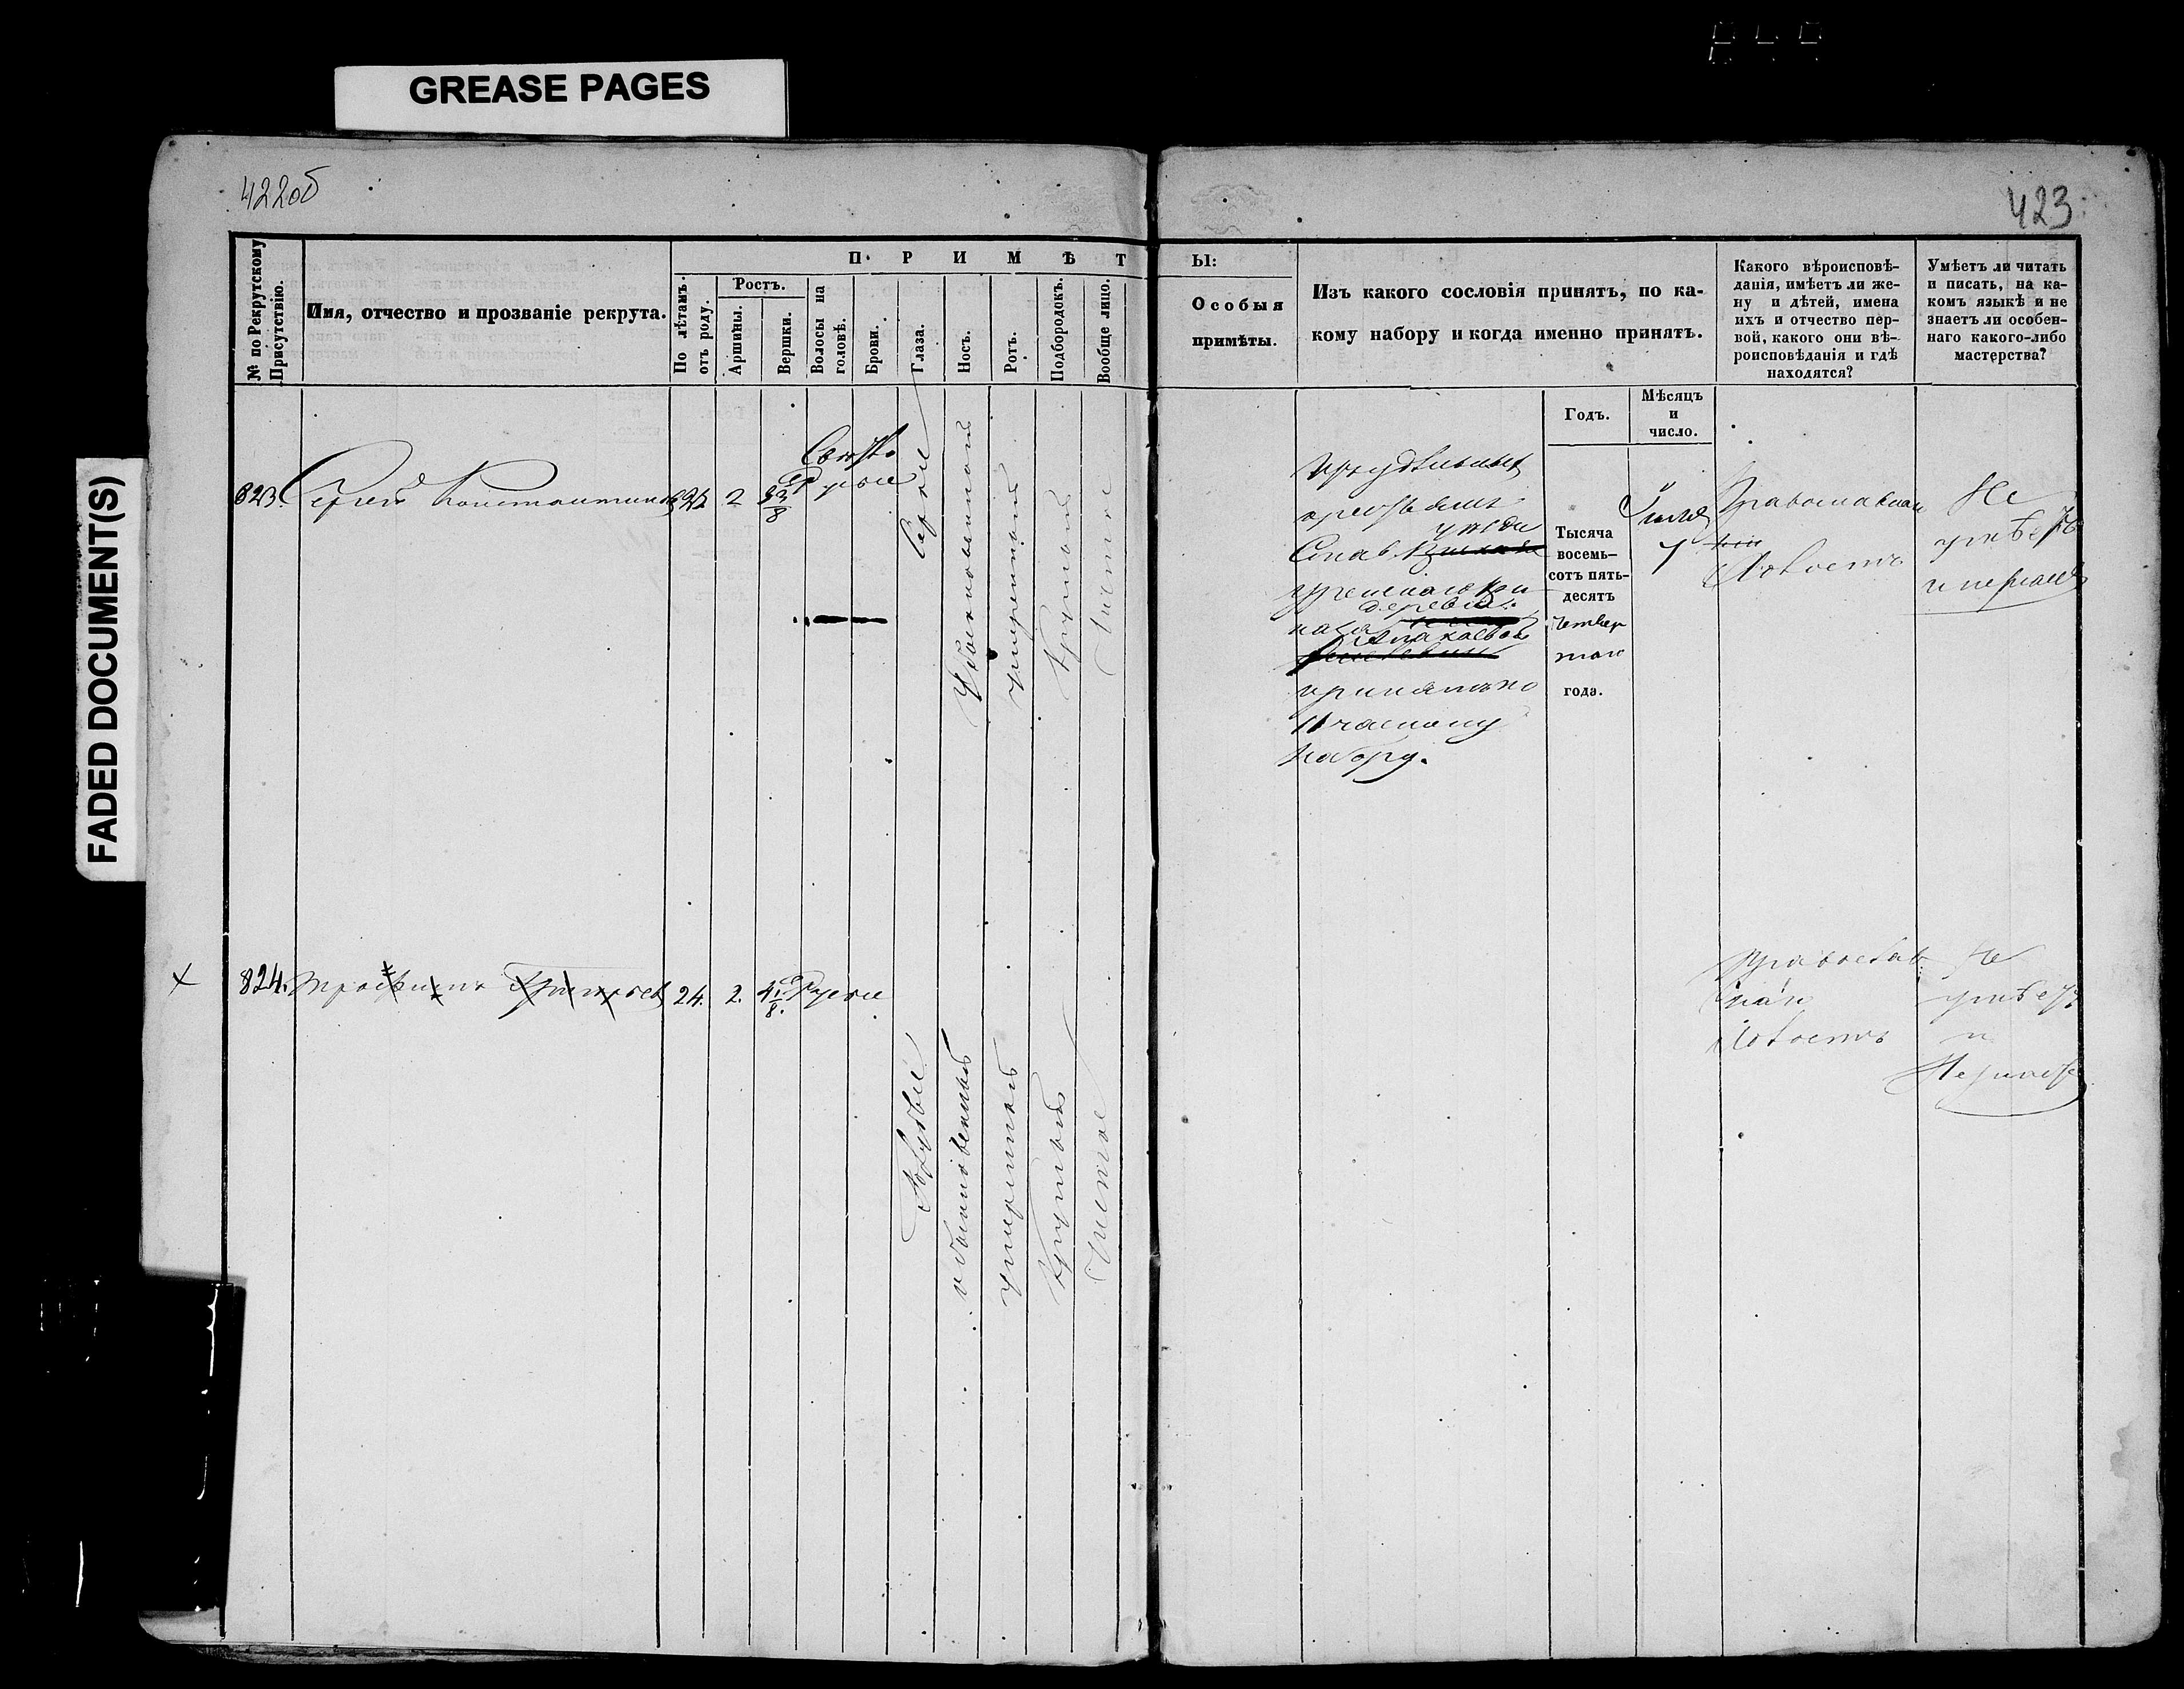 GREASE PAGES
FADED DOCUMENT(S)
422об
423
№ по Рекрутскому
Присутствію.
Имя, отчество и прозваніе рекрута.
ПРИМѢТ
По лѣтамъ
отъ роду.
Ростъ.
Аршины.
Вершки.
Волосы на
головѣ.
Брови.
Глаза.
Носъ.
Ротъ.
Подбородокъ.
Вообще лицо.
Ы:
Особыя
примѣты.
Изъ какого сословія принятъ, по ка-
кому набору и когда именно принятъ.
Какого вѣроисповѣ-
данія, имѣетъ ли же-
ну и дѣтей, имена
ихъ и отчество пер-
вой, какого они вѣ-
роисповѣданія и гдѣ
находятся?
Умѣетъ ли читать
и писать, на ка-
комъ языкѣ и не
знаетъ ли особен-
наго какого-либо
мастерства?
Годъ.
Мѣсяцъ
и
число.
823.
Сергей Константиновъ
2
3 3/8
русые
Серые
Обыкновенный
умеренный
Круглый
Чистое
крестьянъ
уѣзда
деревни
принятъ по
11 частному
набору.
Тысяча
восемь-
сотъ пять-
десятъ
четвер
таго
года.
Іюля
7
Православнаго
Холостъ
Не
умѣетъ
и не знаетъ
824.
Трофимъ Григорьевъ
24.
2.
4 1/8.
Русые
Голубые
обыкновенный
умеренный
Круглый
Чистое
Православ
наго
Холостъ
Не
умѣетъ
и
Не знаетъ